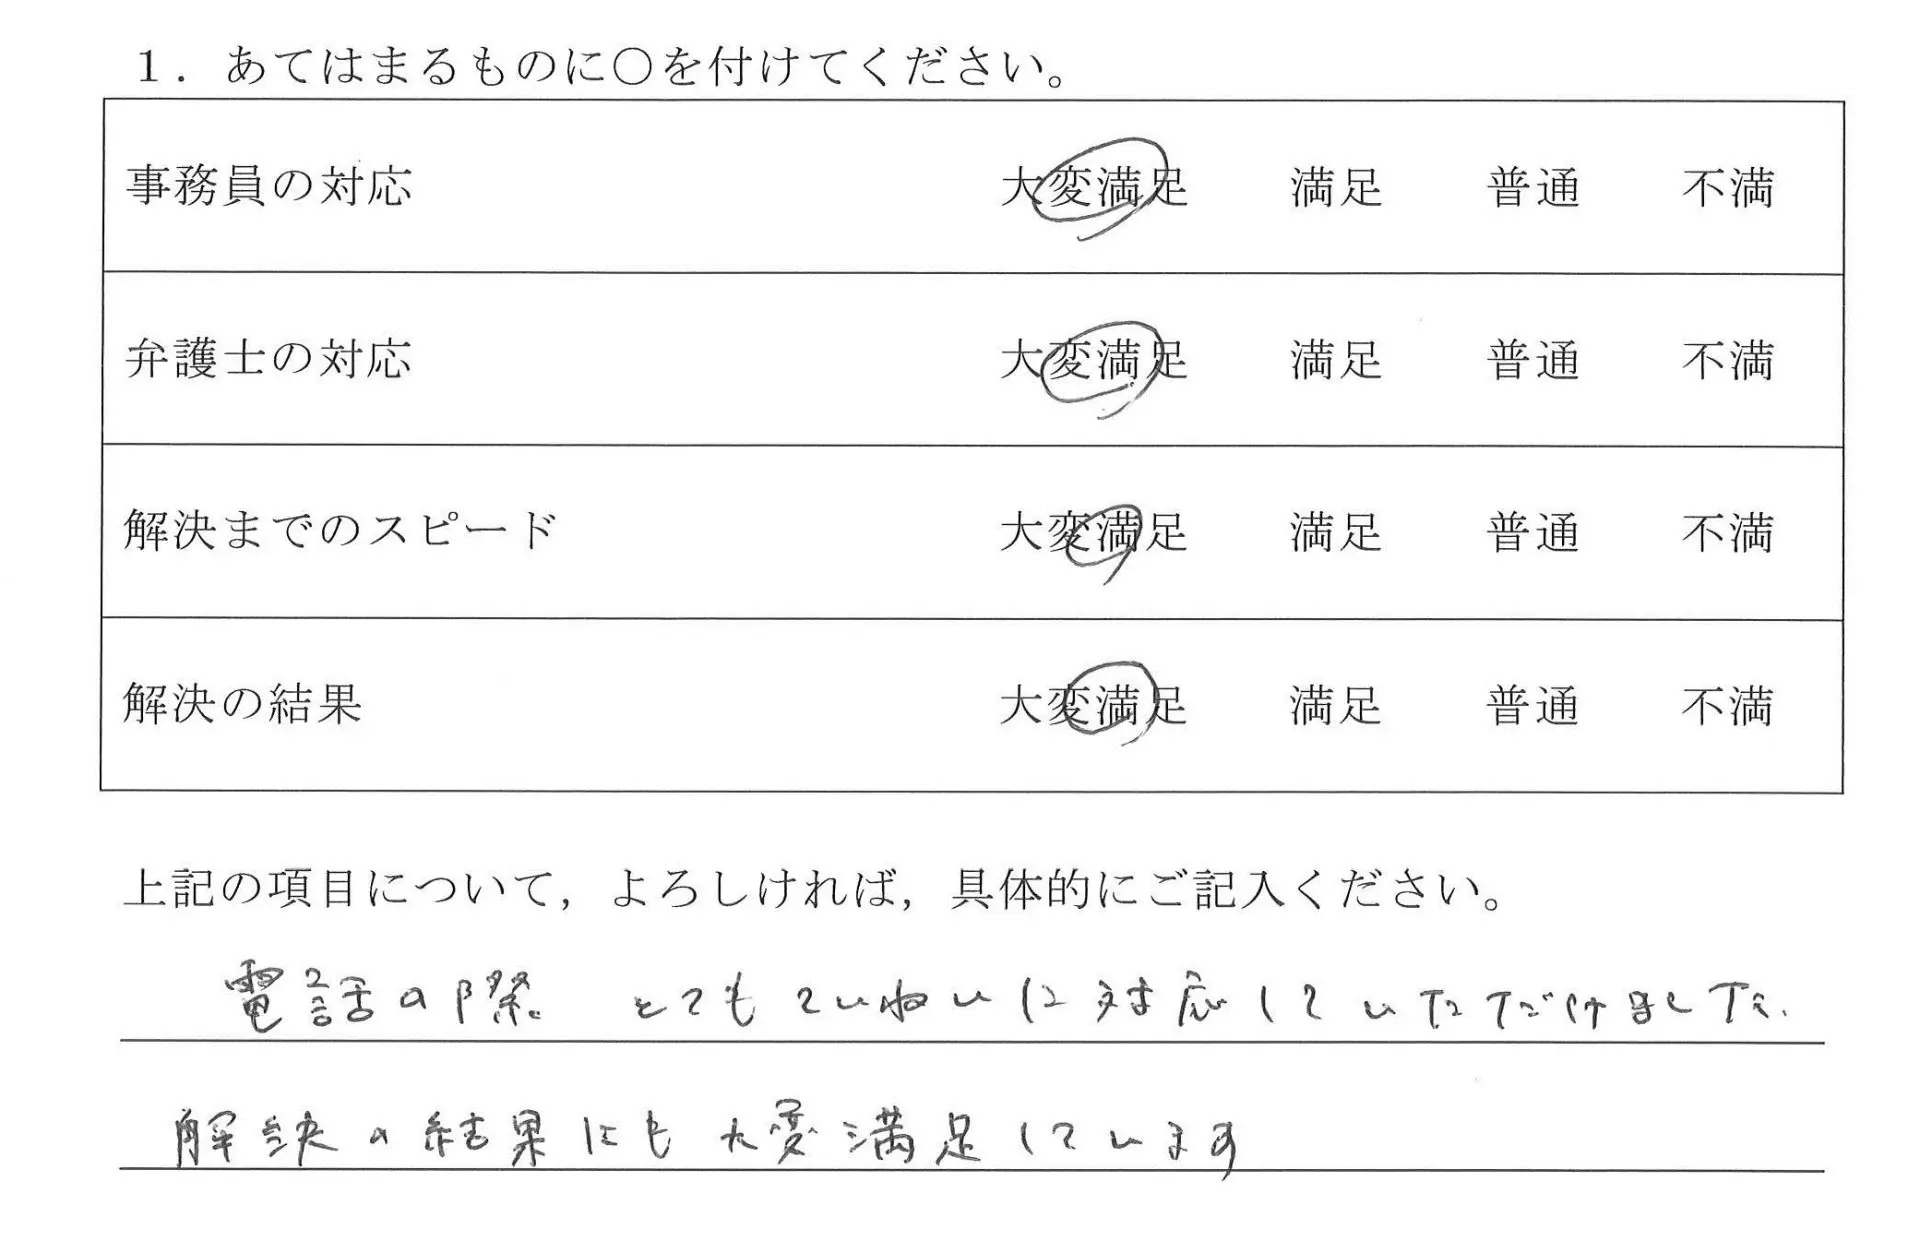 1．あてはまるものに○を付けてください。
事務員の対応 大変満足 満足 普通 不満
弁護士の対応 大変満足 満足 普通 不満
解決までのスピード 大変満足 満足 普通 不満
解決の結果 大変満足 満足 普通 不満
上記の項目について，よろしければ，具体的にご記入ください。
電話の際。とてもていねいに対応していただけました。
解決の結果にも大変満足しています